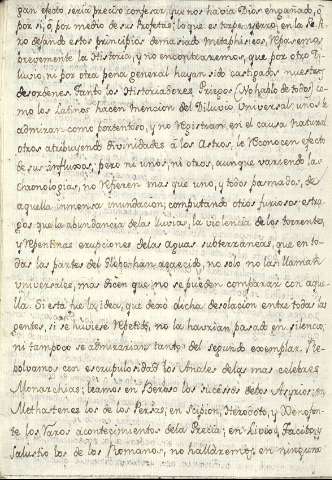 gan efecto sería preciso confesar, que nos havia Dios engañado, ó
por sí, ó por medio de sus Profetas; lo que es torpe yerro, en la fe
ro dejando estos principios demasiado Metaphisicos, Repasemos
brevemente la Historia, y no encontraremos, que por otro Di
luvio, ni por otra pena general hayan sido castigados nuestros
desordenes. Tanto los Historiadores Griegos (No hablo de todos) co
mo los Latinos hacen mencion del Diluvio Universal; unos le
admiran como portentoso, y no Registran en el causa natural
otros atribuyendo divinidades á los Astros, le Reconocen efecto
de sus influxos; pero ni unos, ni otros, aunque variando las
Cronologias, no Refieren mas que uno, y todos pasmados, de
aquella inmensa inundacion; computando otros furiosos estra
gos que la abundancia de las lluvias, la violencia de los torrentes,
y Repentinas erupciones de las aguas subterraneas, que en to
das las partes del Globo han acaecido, no solo no las llaman
universales, mas dicen que no se pueden comparar con aque
lla. Si esta fue la idea, que dejó dicha desolacion entre todas las
gentes, si se huviese Repetido, no la havrian pasado en silencio,
ni tampoco se admirarian tanto del segundo exemplar. Re
bolvamos con escrupulosidad los Anales de las mas celebres
Monarchias; leamos en Beroso los sucesos de los Asyrios; en
Methastenes los de los Persas; en Scipion, Herodoto, y Xenofon
te los varios acontecimientos de la Grecia; en Livio, Tacito, y
Salustio los de los Romanos, no hallaremos en ninguna